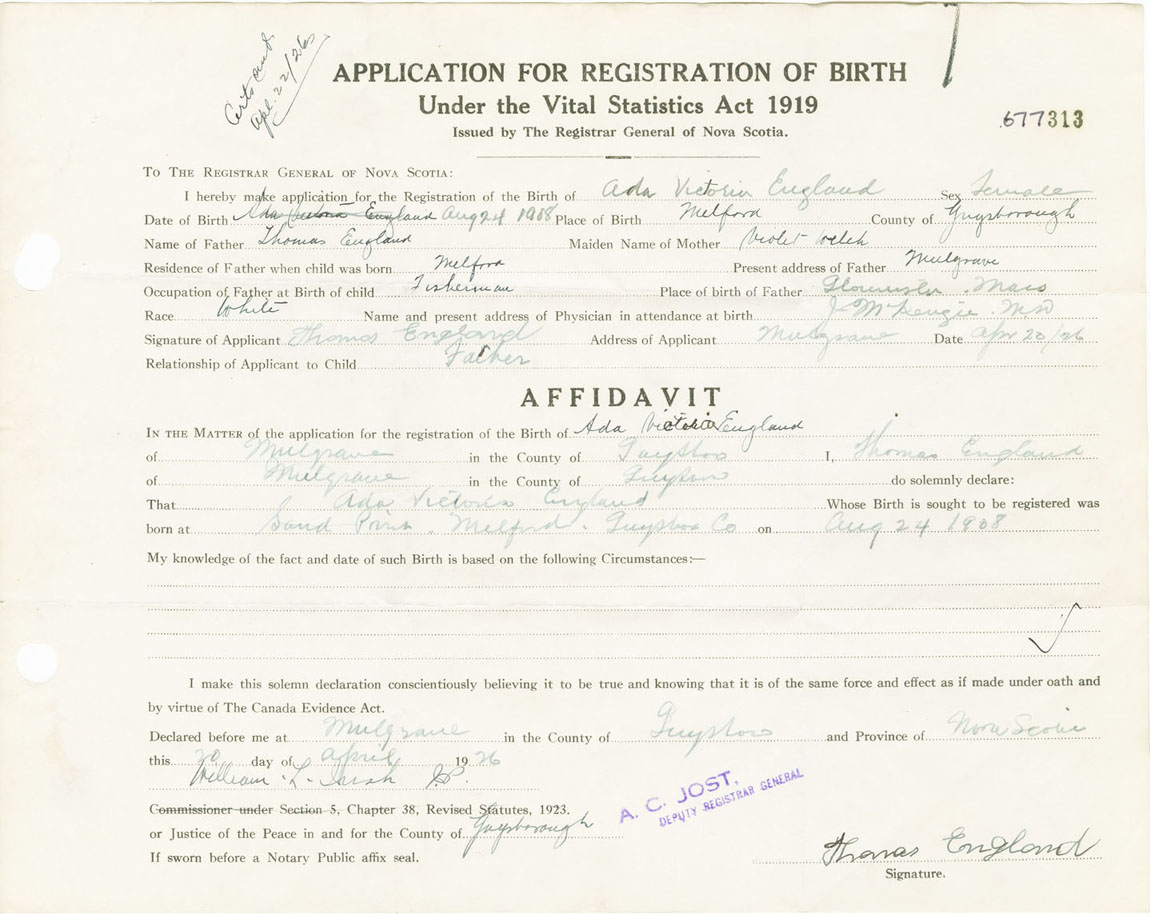 Certs and.
Apl. 22/26
APPLICATION FOR REGISTRATION OF BIRTH
Under the Vital Statistics Act 1919
Issued by The Registrar General of Nova Scotia.
677313
TO THE REGISTRAR GENERAL OF NOVA SCOTIA:
I hereby make application for the Registration of the Birth of Ada Victoria England Sex Female
Date of Birth Ada Victoria England Aug 24 1908 Place of Birth Melford County of Guysborough
Name of Father Thomas England Maiden Name of Mother Violet Welch
Residence of Father when child was born Melford Present address of Father Mulgrave
Occupation of Father at Birth of child Fisherman Place of birth of Father Gloucester . Mass
Race White Name and present address of Physician in attendance at birth J McKenzie . MD
Signature of Applicant Thomas England Address of Applicant Mulgrave Date Apr 20/26
Relationship of Applicant to Child Father
AFFIDAVIT
IN THE MATTER of the application for the registration of the Birth of Ada Victoria England
of Mulgrave in the County of Guysboro I, Thomas England
of Mulgrave in the County of Guysboro do solemnly declare:
That Ada Victoria England Whose Birth is sought to be registered was
born at Sand Point . Melford . Guysboro Co on Aug 24 1908
My knowledge of the fact and date of such Birth is based on the following Circumstances:—
I make this solemn declaration conscientiously believing it to be true and knowing that it is of the same force and effect as if made under oath and
by virtue of The Canada Evidence Act.
Declared before me at Mulgrave in the County of Guysboro and Province of Nova Scotia
this 20 day of April 1926
William L. JP.
Commissioner under Section 5, Chapter 38, Revised Statutes, 1923.
A. C. JOST,
DEPUTY REGISTRAR GENERAL
or Justice of the Peace in and for the County of Guysborough
If sworn before a Notary Public affix seal.
Thomas England
Signature.